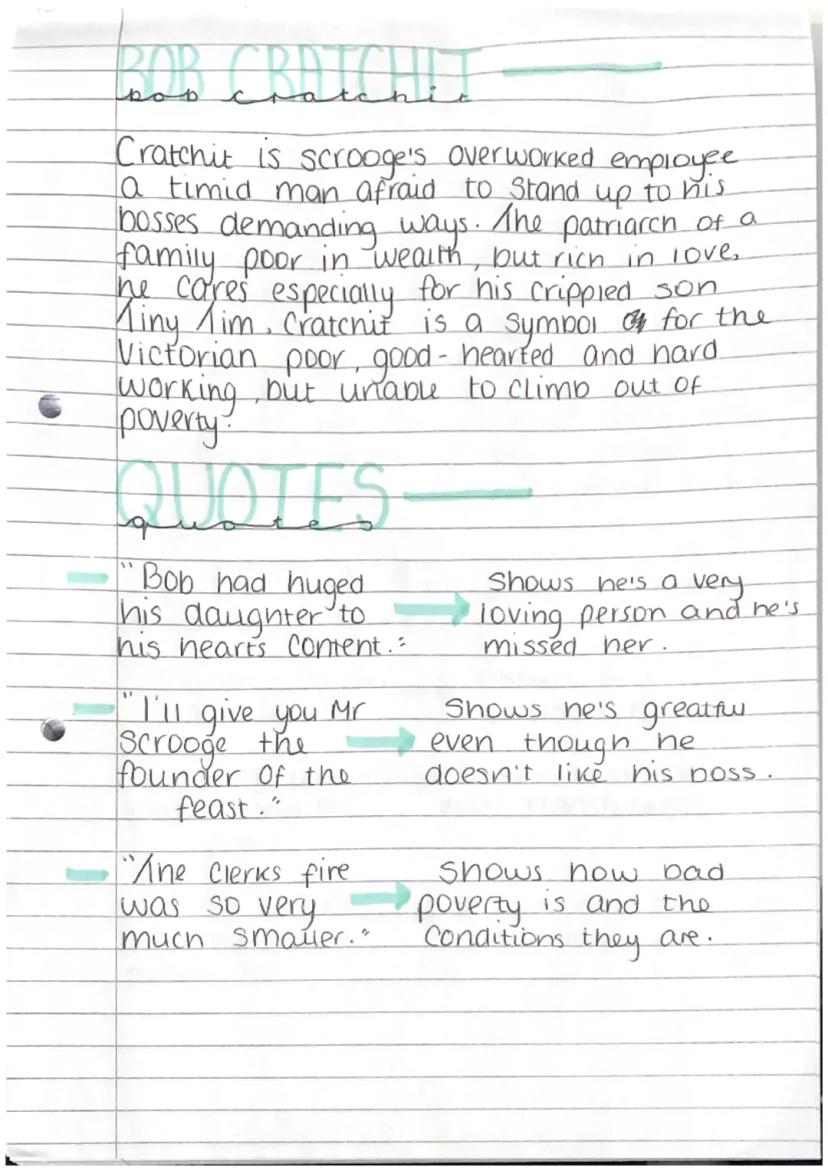 BOB CRATCHIT
bob cratchit
Cratchit is scrooge's overworked employee
a timid man afraid to stand up to his
bosses demanding ways. The patriarch of a
family poor in wealth, but rich in love,
he cares especially for his crippled son
Tiny Tim. Cratchit is a symbol for the
Victorian poor, good-hearted and hard
working, but unable to climb out of
poverty.
QUOTES
quotes
"Bob had huged
his daughter to
his hearts content."
Shows he's a very
loving person and he's
missed her.
"I'll give you Mr
Scrooge the
founder of the
feast."
Shows he's greatful
even though he
doesn't like his boss.
"The clerks fire
was so very
much smaller."
Shows how bad
poverty is and the
conditions they are.